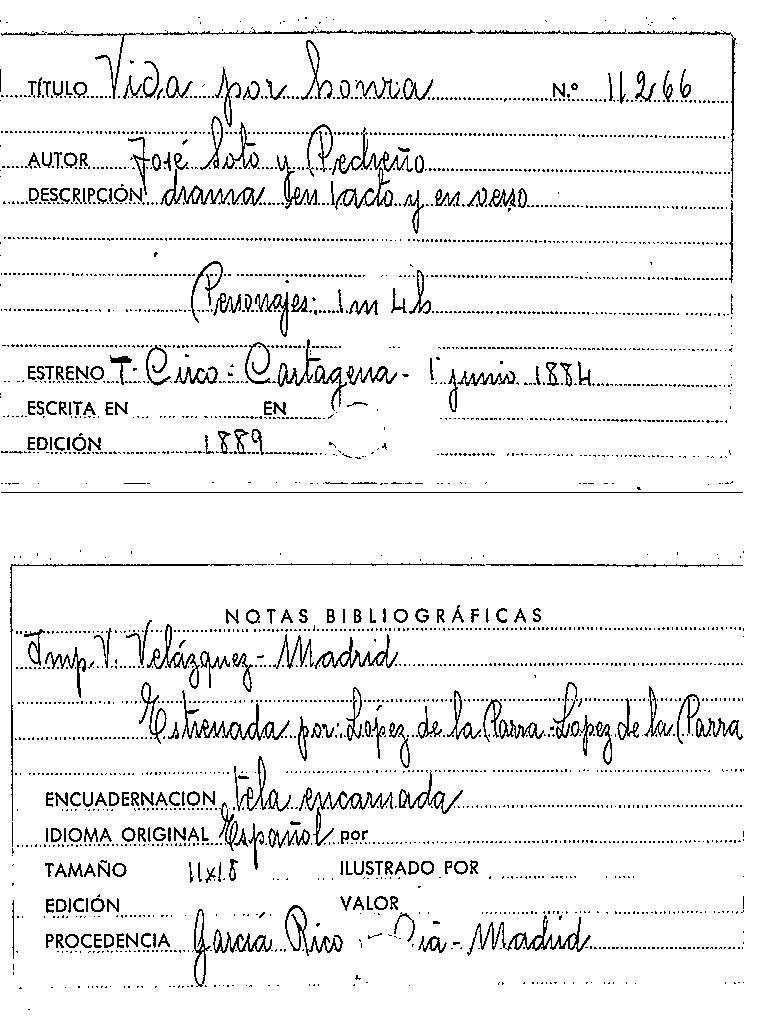 TÍTULO Vida por honra N.º 11266
AUTOR José Soto y Pedreño
DESCRIPCIÓN drama en 1 acto y en verso
Personajes: 1m 4h
ESTRENO T. Circo = Cartagena - 1 junio 1884
ESCRITA EN EN
EDICIÓN 1889
NOTAS BIBLIOGRÁFICAS
Imp. V. Velázquez - Madrid
Estrenada por: López de la Parra - López de la Parra
ENCUADERNACION tela encarnada
IDIOMA ORIGINAL Español por
TAMAÑO 11x18 ILUSTRADO POR
EDICIÓN VALOR
PROCEDENCIA García Rico - Madrid